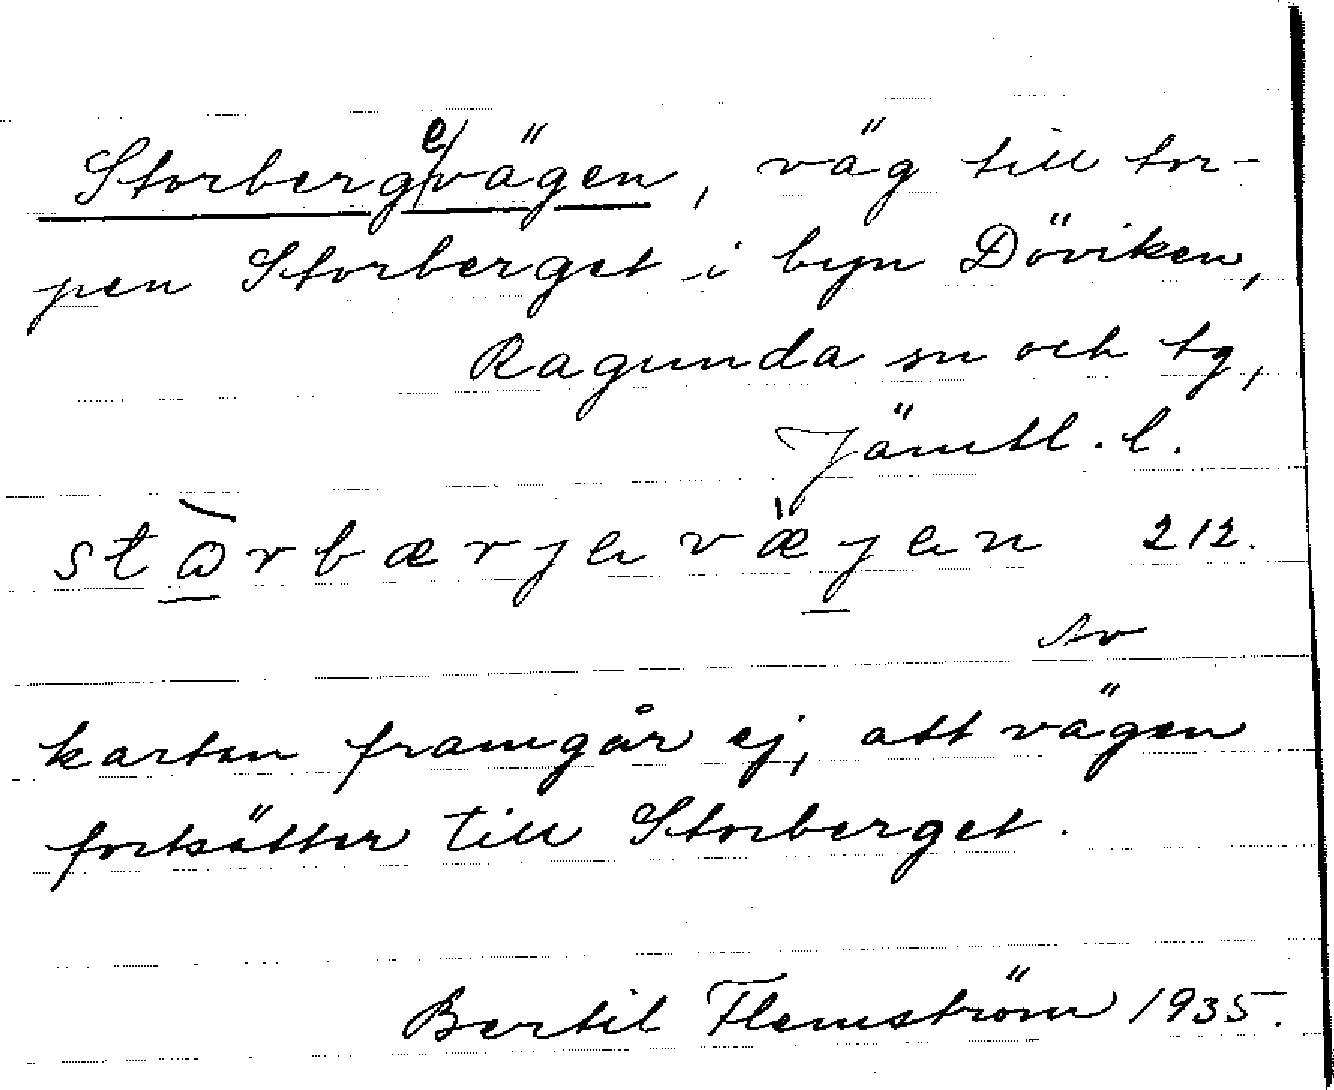 Storbergevägen, väg till tor-
pen Storberget i byn Döviken,
Ragunda sn och tg,
Jämtl. l.
stɷ̀rbærjevæ̀jen 212.
Av
kartan framgår ej, att vägen
fortsätter till Storberget.
Bertil Flemström 1935.